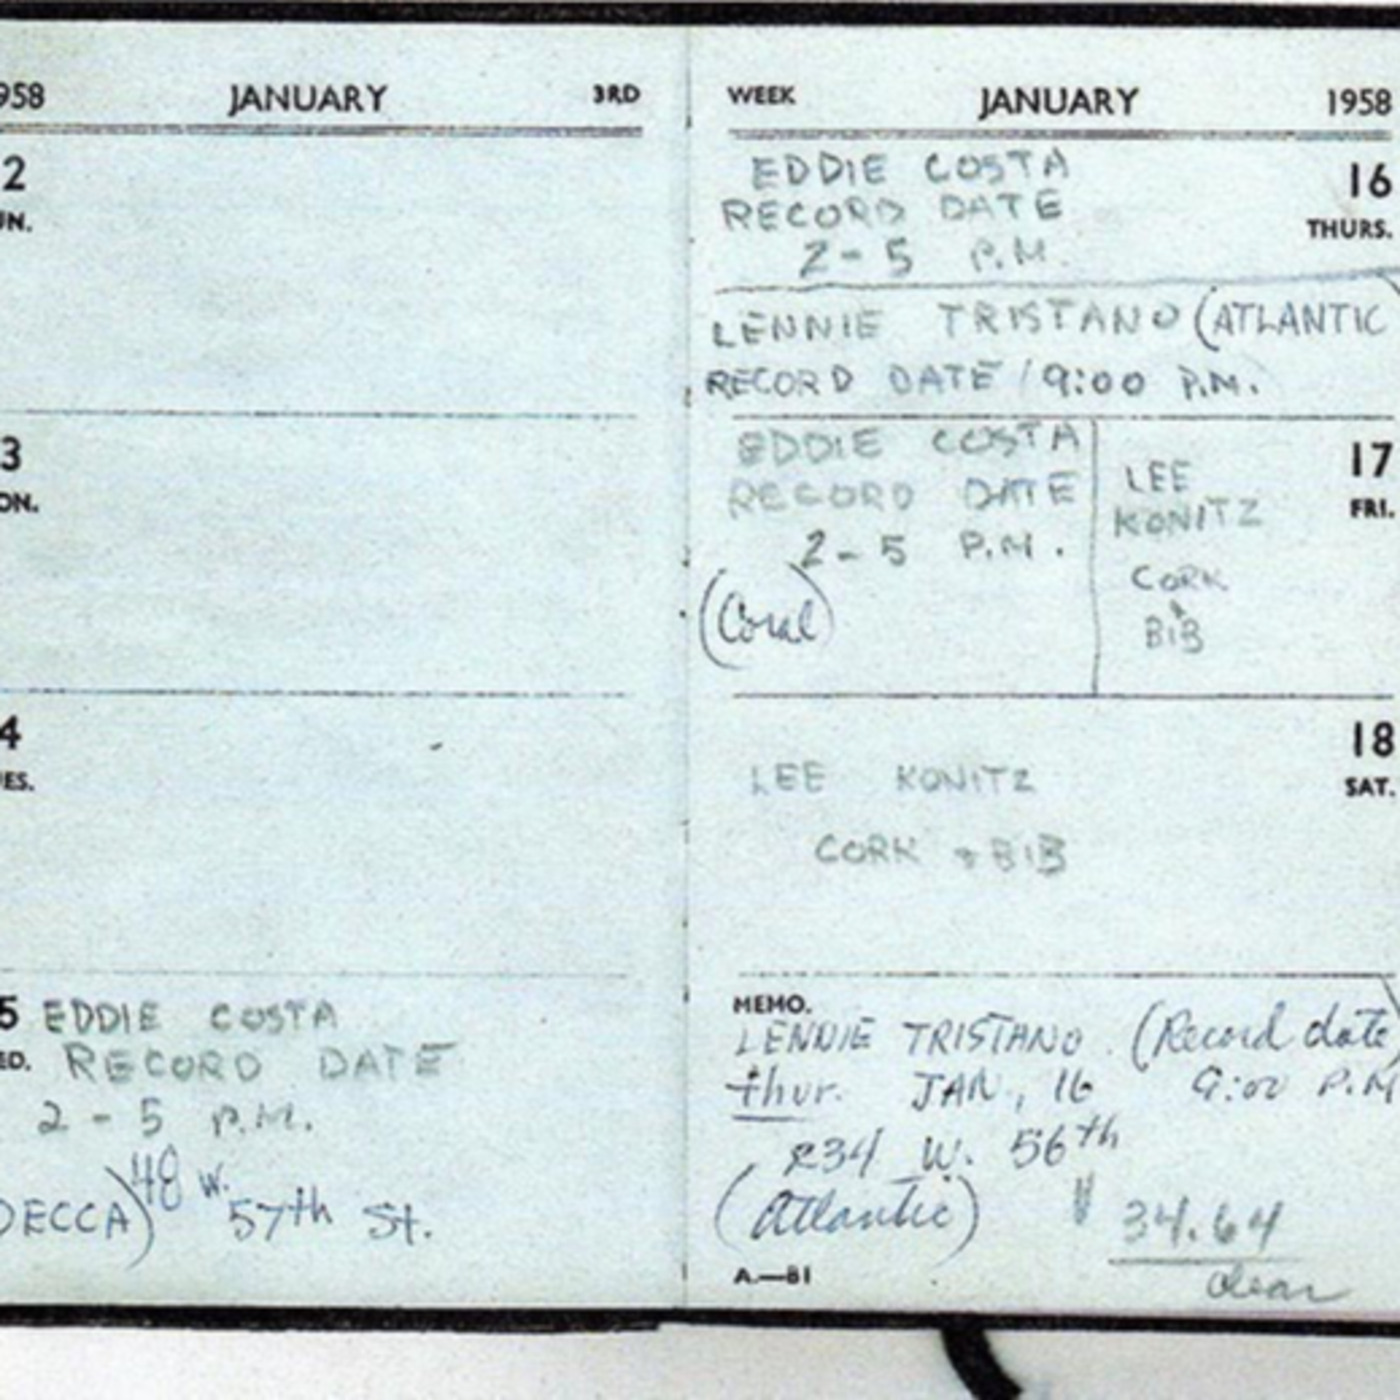 958 JANUARY 3RD
2
UN.
3
ON.
4
ES.
5 EDDIE COSTA
ED. RECORD DATE
2-5 P.M.
DECCA) 48 W.
57th St.
WEEK JANUARY 1958
EDDIE COSTA 16
RECORD DATE THURS.
2-5 P.M.
LENNIE TRISTANO (ATLANTIC)
RECORD DATE / 9:00 P.M.
EDDIE COSTA
RECORD DATE
2-5 P.M.
(Coral)
LEE
KONITZ
CORK
&
BIB
17
FRI.
18
SAT.
LEE KONITZ
CORK & BIB
MEMO.
LENNIE TRISTANO (Record date)
thur. JAN, 16 9:00 P.M
234 W. 56th
(Atlantic) 34.64
clear
A.—81